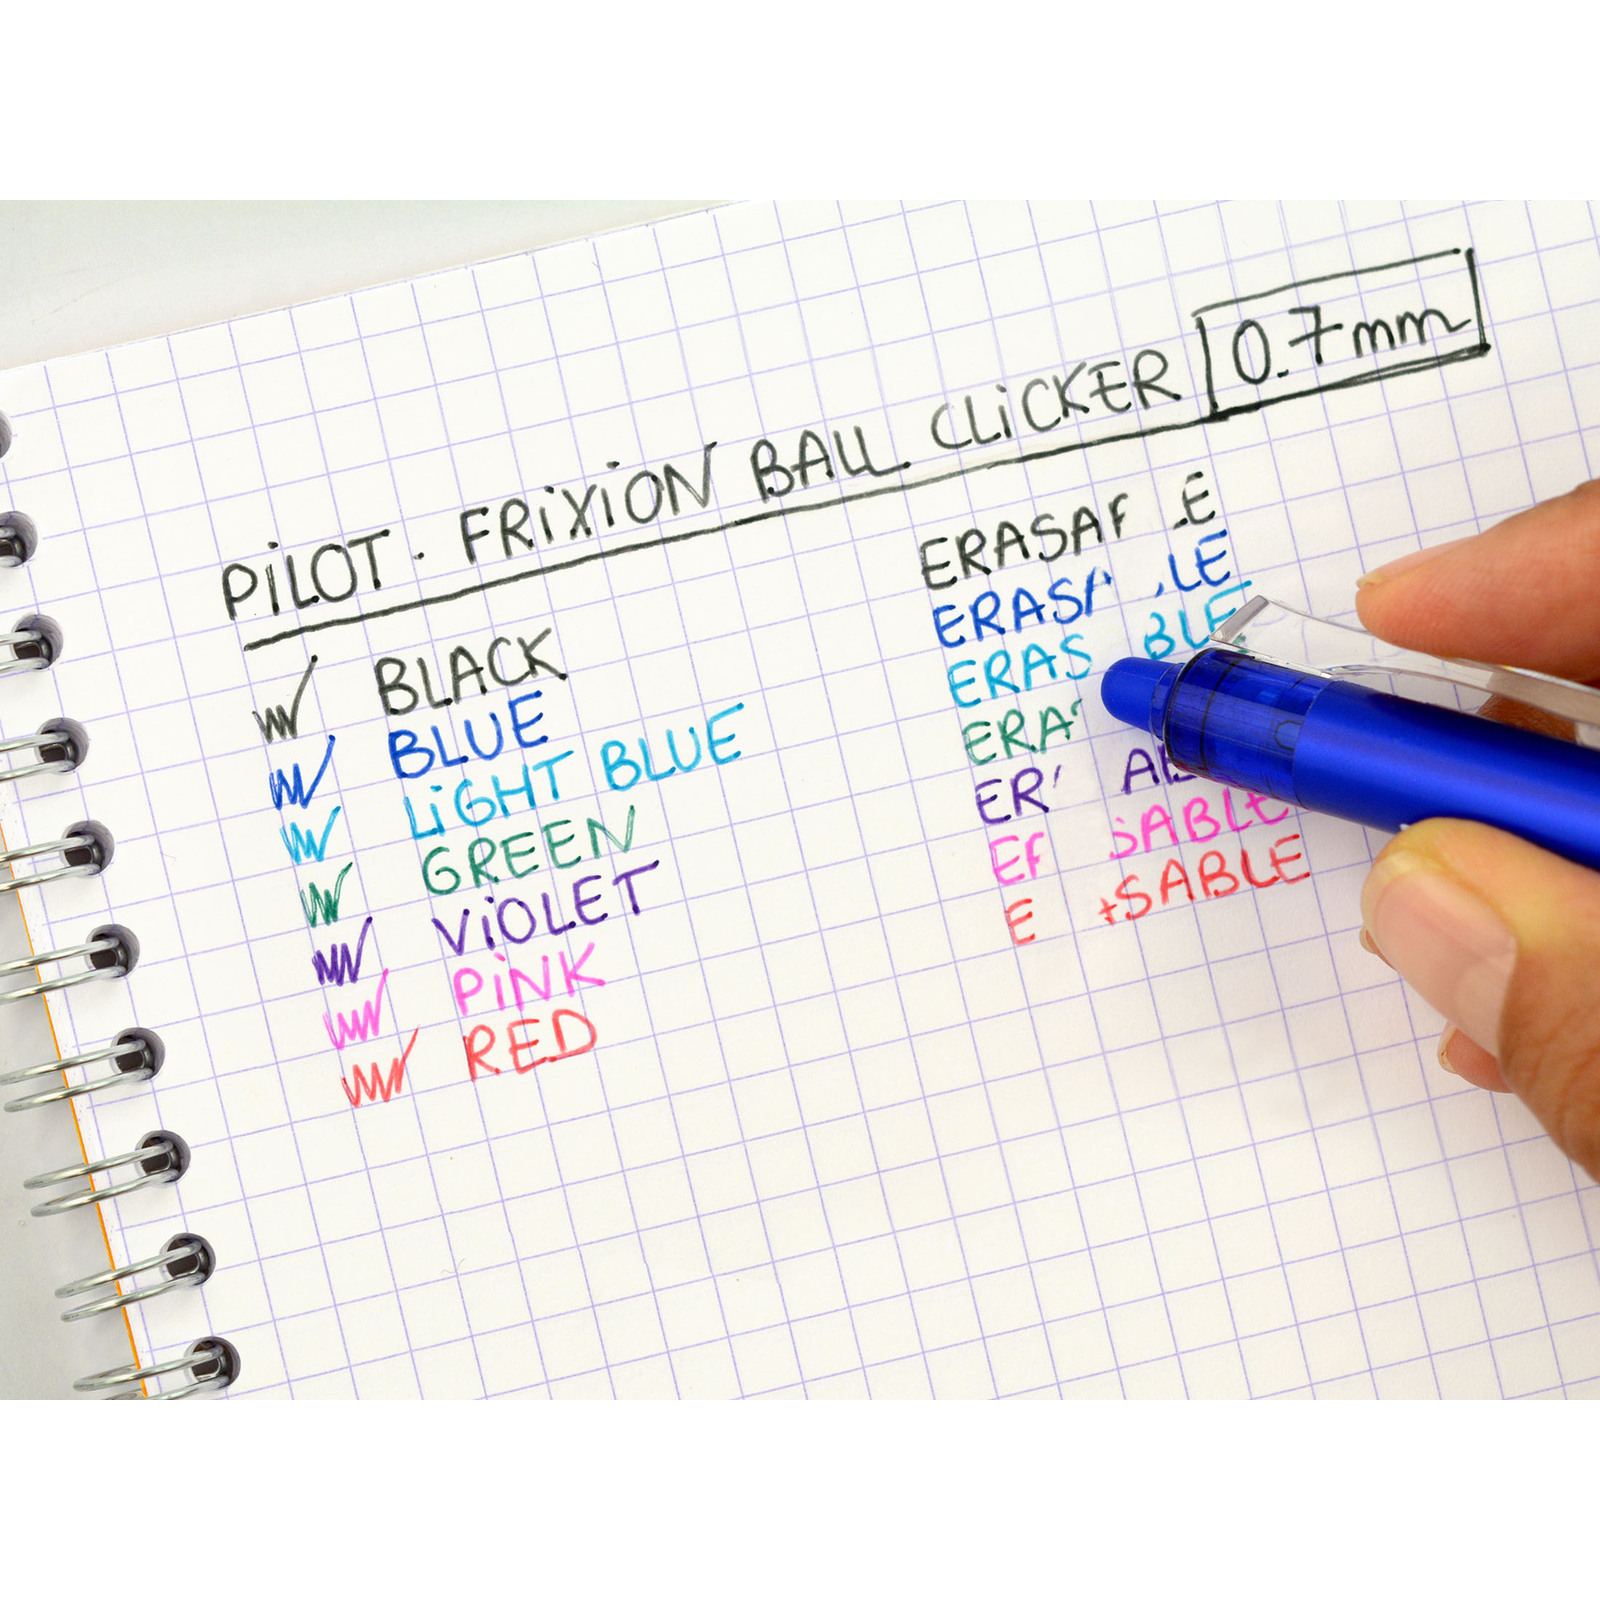 PiLOT. FRiXiON BALL CLiCKER 0.7mm
BLACK
BLUE
LiGHT BLUE
GREEN
ViOLET
PiNK
RED
ERASA LE
ERAS LE
ERAS BLE
ERA
ER AB
E SABLE
E SABLE